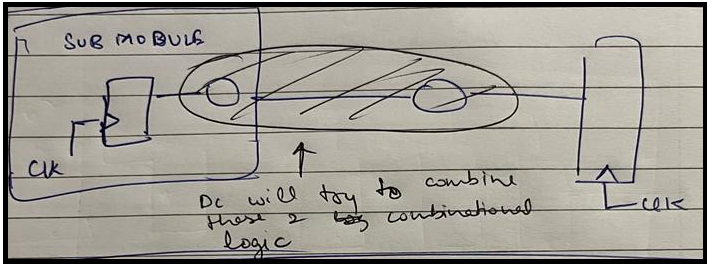 SUB MODULE
Clk
Clk
DC will try to combine
these 2 combinational
logic